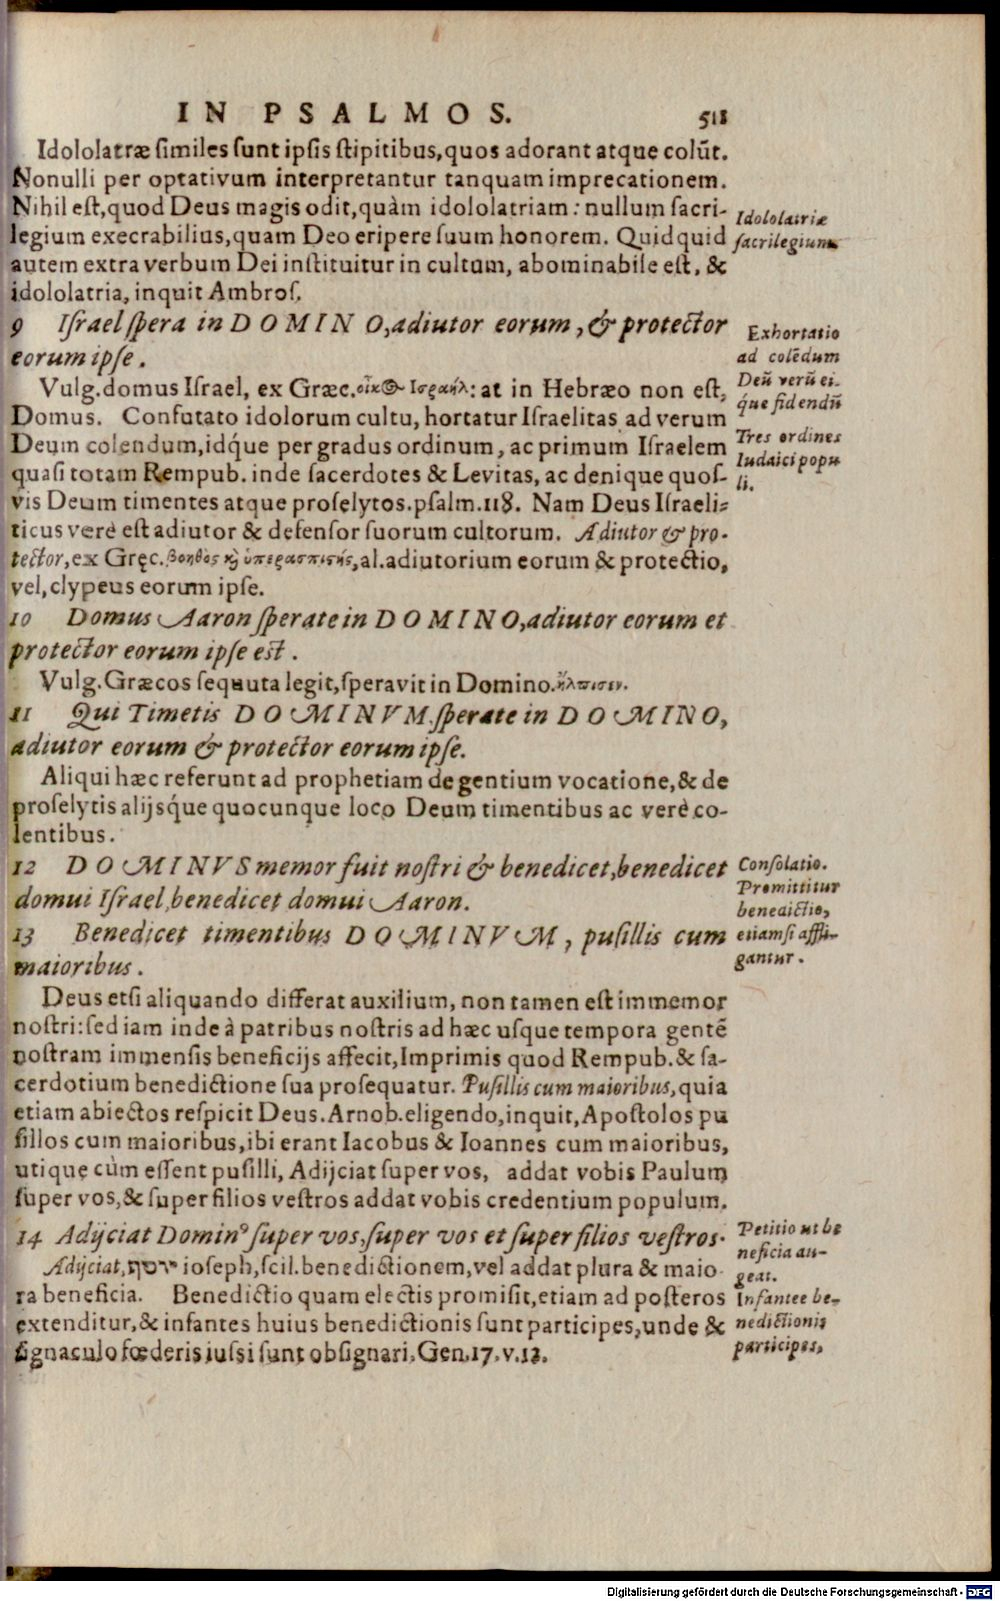 IN PSALMOS. 511
Idololatræ similes sunt ipsis stipitibus, quos adorant atque colũt.
Nonulli per optativum interpretantur tanquam imprecationem.
Nihil est, quod Deus magis odit, quàm idololatriam: nullum sacri-
legium execrabilius, quam Deo eripere suum honorem. Quidquid
autem extra verbum Dei instituitur in cultum, abominabile est, &
idololatria, inquit Ambros.
Idololatriæ
sacrilegium
9 Israel spera in DOMINO, adiutor eorum, & protector
eorum ipse.
Vulg. domus Israel, ex Græc. οἶκος Ισραήλ: at in Hebræo non est,
Domus. Confutato idolorum cultu, hortatur Israelitas ad verum
Deum colendum, idq́ue per gradus ordinum, ac primum Israelem
quasi totam Rempub. inde sacerdotes & Levitas, ac denique quos-
vis Deum timentes atque proselytos. psalm. 118. Nam Deus Israeli-
ticus verè est adiutor & defensor suorum cultorum. Adiutor & pro-
tector, ex Gręc. βοηθὸς κὶ ὑπερασπιστής, al. adiutorium eorum & protectio,
vel, clypeus eorum ipse.
Exhortatio
ad colẽdum
Deũ verũ ei-
q́ue fidendũ
Tres ordines
Iudaici popu
li.
10 Domus Aaron sperate in DOMINO, adiutor eorum et
protector eorum ipse est.
Vulg. Græcos sequuta legit, speravit in Domino. ἤλπισεν.
11 Qui Timetis DOMINVM, sperate in DOMINO,
adiutor eorum & protector eorum ipse.
Aliqui hæc referunt ad prophetiam de gentium vocatione, & de
proselytis alijsq́ue quocunque loco Deum timentibus ac verè co-
lentibus.
12 DOMINVS memor fuit nostri & benedicet, benedicet
domui Israel, benedicet domui Aaron.
13 Benedicet timentibus DOMINVM, pusillis cum
maioribus.
Consolatio.
Promittitur
benedictio,
etiamsi affli-
gantur.
Deus etsi aliquando differat auxilium, non tamen est immemor
nostri: sed iam inde à patribus nostris ad hæc usque tempora gentẽ
nostram immensis beneficijs affecit, Imprimis quod Rempub. & sa-
cerdotium benedictione sua prosequatur. Pusillis cum maioribus, quia
etiam abiectos respicit Deus. Arnob. eligendo, inquit, Apostolos pu
sillos cum maioribus, ibi erant Iacobus & Ioannes cum maioribus,
utique cùm essent pusilli, Adijciat super vos, addat vobis Paulum
super vos, & super filios vestros addat vobis credentium populum.
14 Adijciat Dominꝰ super vos, super vos et super filios vestros.
Adijciat, יוסף ioseph, scil. benedictionem, vel addat plura & maio
ra beneficia. Benedictio quam electis promisit, etiam ad posteros
extenditur, & infantes huius benedictionis sunt participes, unde &
signaculo fœderis iussi sunt obsignari, Gen. 17. v. 12.
Petitio ut be
neficia au-
geat.
Infantes be-
nedictionis
participes,
Digitalisierung gefördert durch die Deutsche Forschungsgemeinschaft - DFG